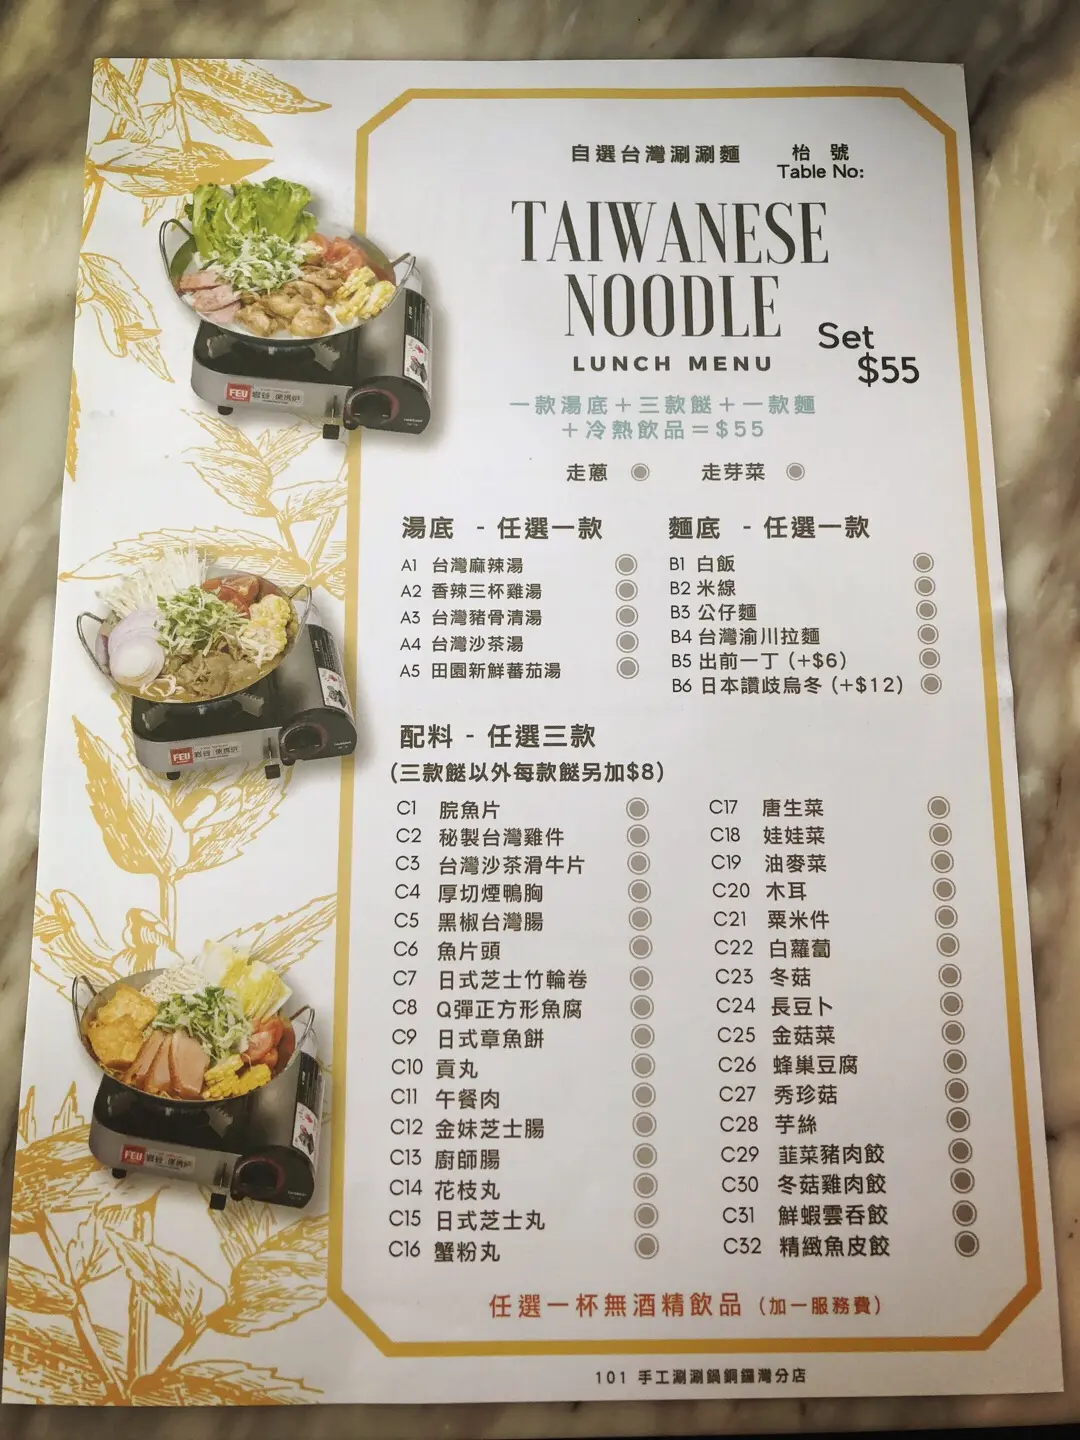 自選台灣涮涮麵
枱 號
Table No:
TAIWANESE
NOODLE
LUNCH MENU
Set
$55
一款湯底＋三款餸＋一款麵
＋冷熱飲品＝$55
走蔥
走芽菜
湯底 - 任選一款
A1 台灣麻辣湯
A2 香辣三杯雞湯
A3 台灣豬骨清湯
A4 台灣沙茶湯
A5 田園新鮮蕃茄湯
麵底 - 任選一款
B1 白飯
B2 米線
B3 公仔麵
B4 台灣渝川拉麵
B5 出前一丁 (+$6)
B6 日本讚歧烏冬 (+$12)
配料 - 任選三款
(三款餸以外每款餸另加$8)
C1 脘魚片
C2 秘製台灣雞件
C3 台灣沙茶滑牛片
C4 厚切煙鴨胸
C5 黑椒台灣腸
C6 魚片頭
C7 日式芝士竹輪卷
C8 Q彈正方形魚腐
C9 日式章魚餅
C10 貢丸
C11 午餐肉
C12 金妹芝士腸
C13 廚師腸
C14 花枝丸
C15 日式芝士丸
C16 蟹粉丸
C17 唐生菜
C18 娃娃菜
C19 油麥菜
C20 木耳
C21 粟米件
C22 白蘿蔔
C23 冬菇
C24 長豆卜
C25 金菇菜
C26 蜂巢豆腐
C27 秀珍菇
C28 芋絲
C29 韮菜豬肉餃
C30 冬菇雞肉餃
C31 鮮蝦雲吞餃
C32 精緻魚皮餃
任選一杯無酒精飲品（加一服務費）
101 手工涮涮鍋銅鑼灣分店
FEU
FEU
FEU